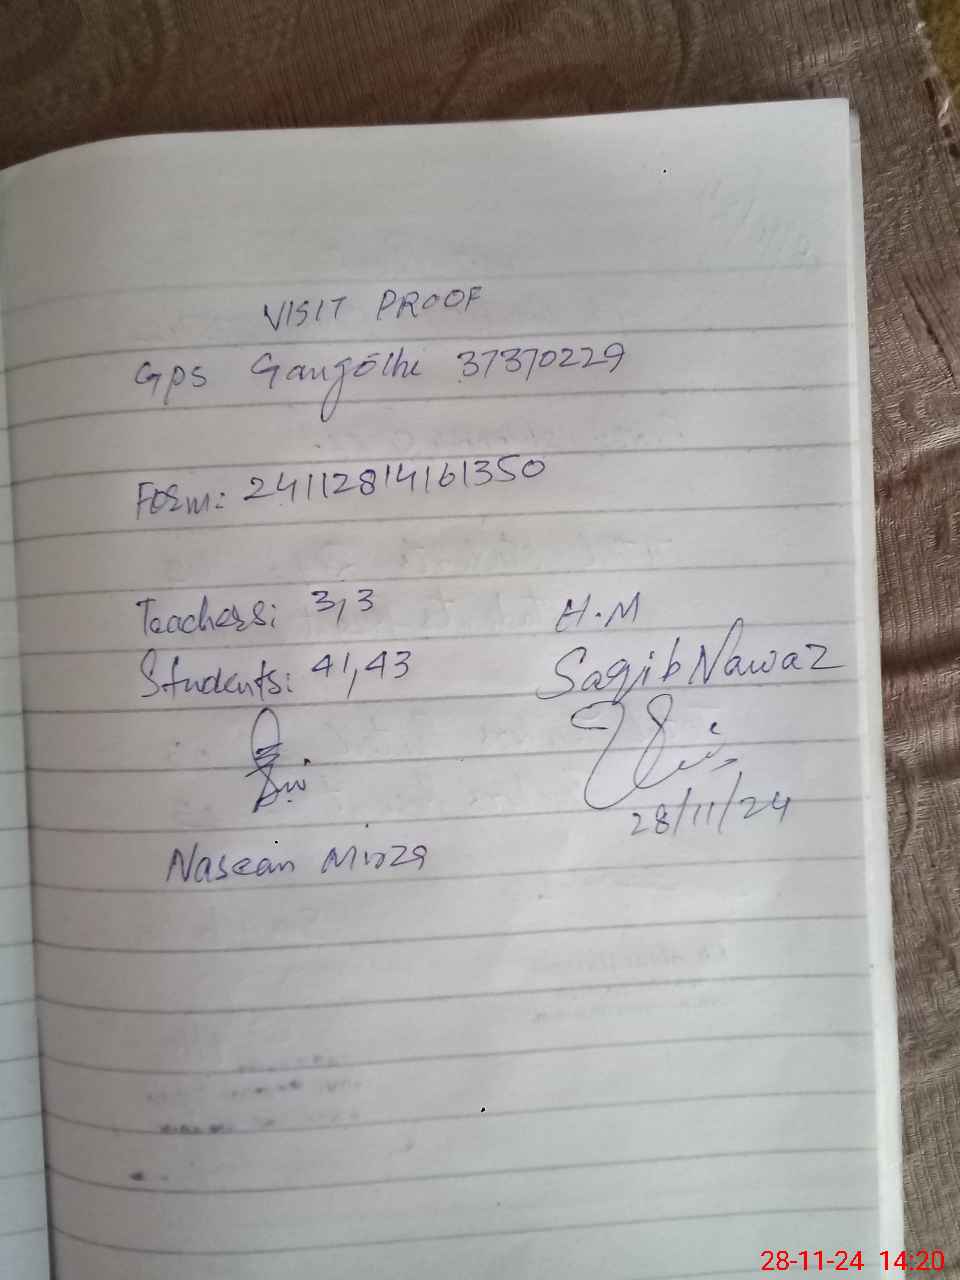 VISIT PROOF
GPS Gangothi 37370229
Form: 24112814161350
Teachers: 3,3
H.M
Students: 41,43
Saqib Nawaz
28/11/24
Naseem Mirza
28-11-24 14:20